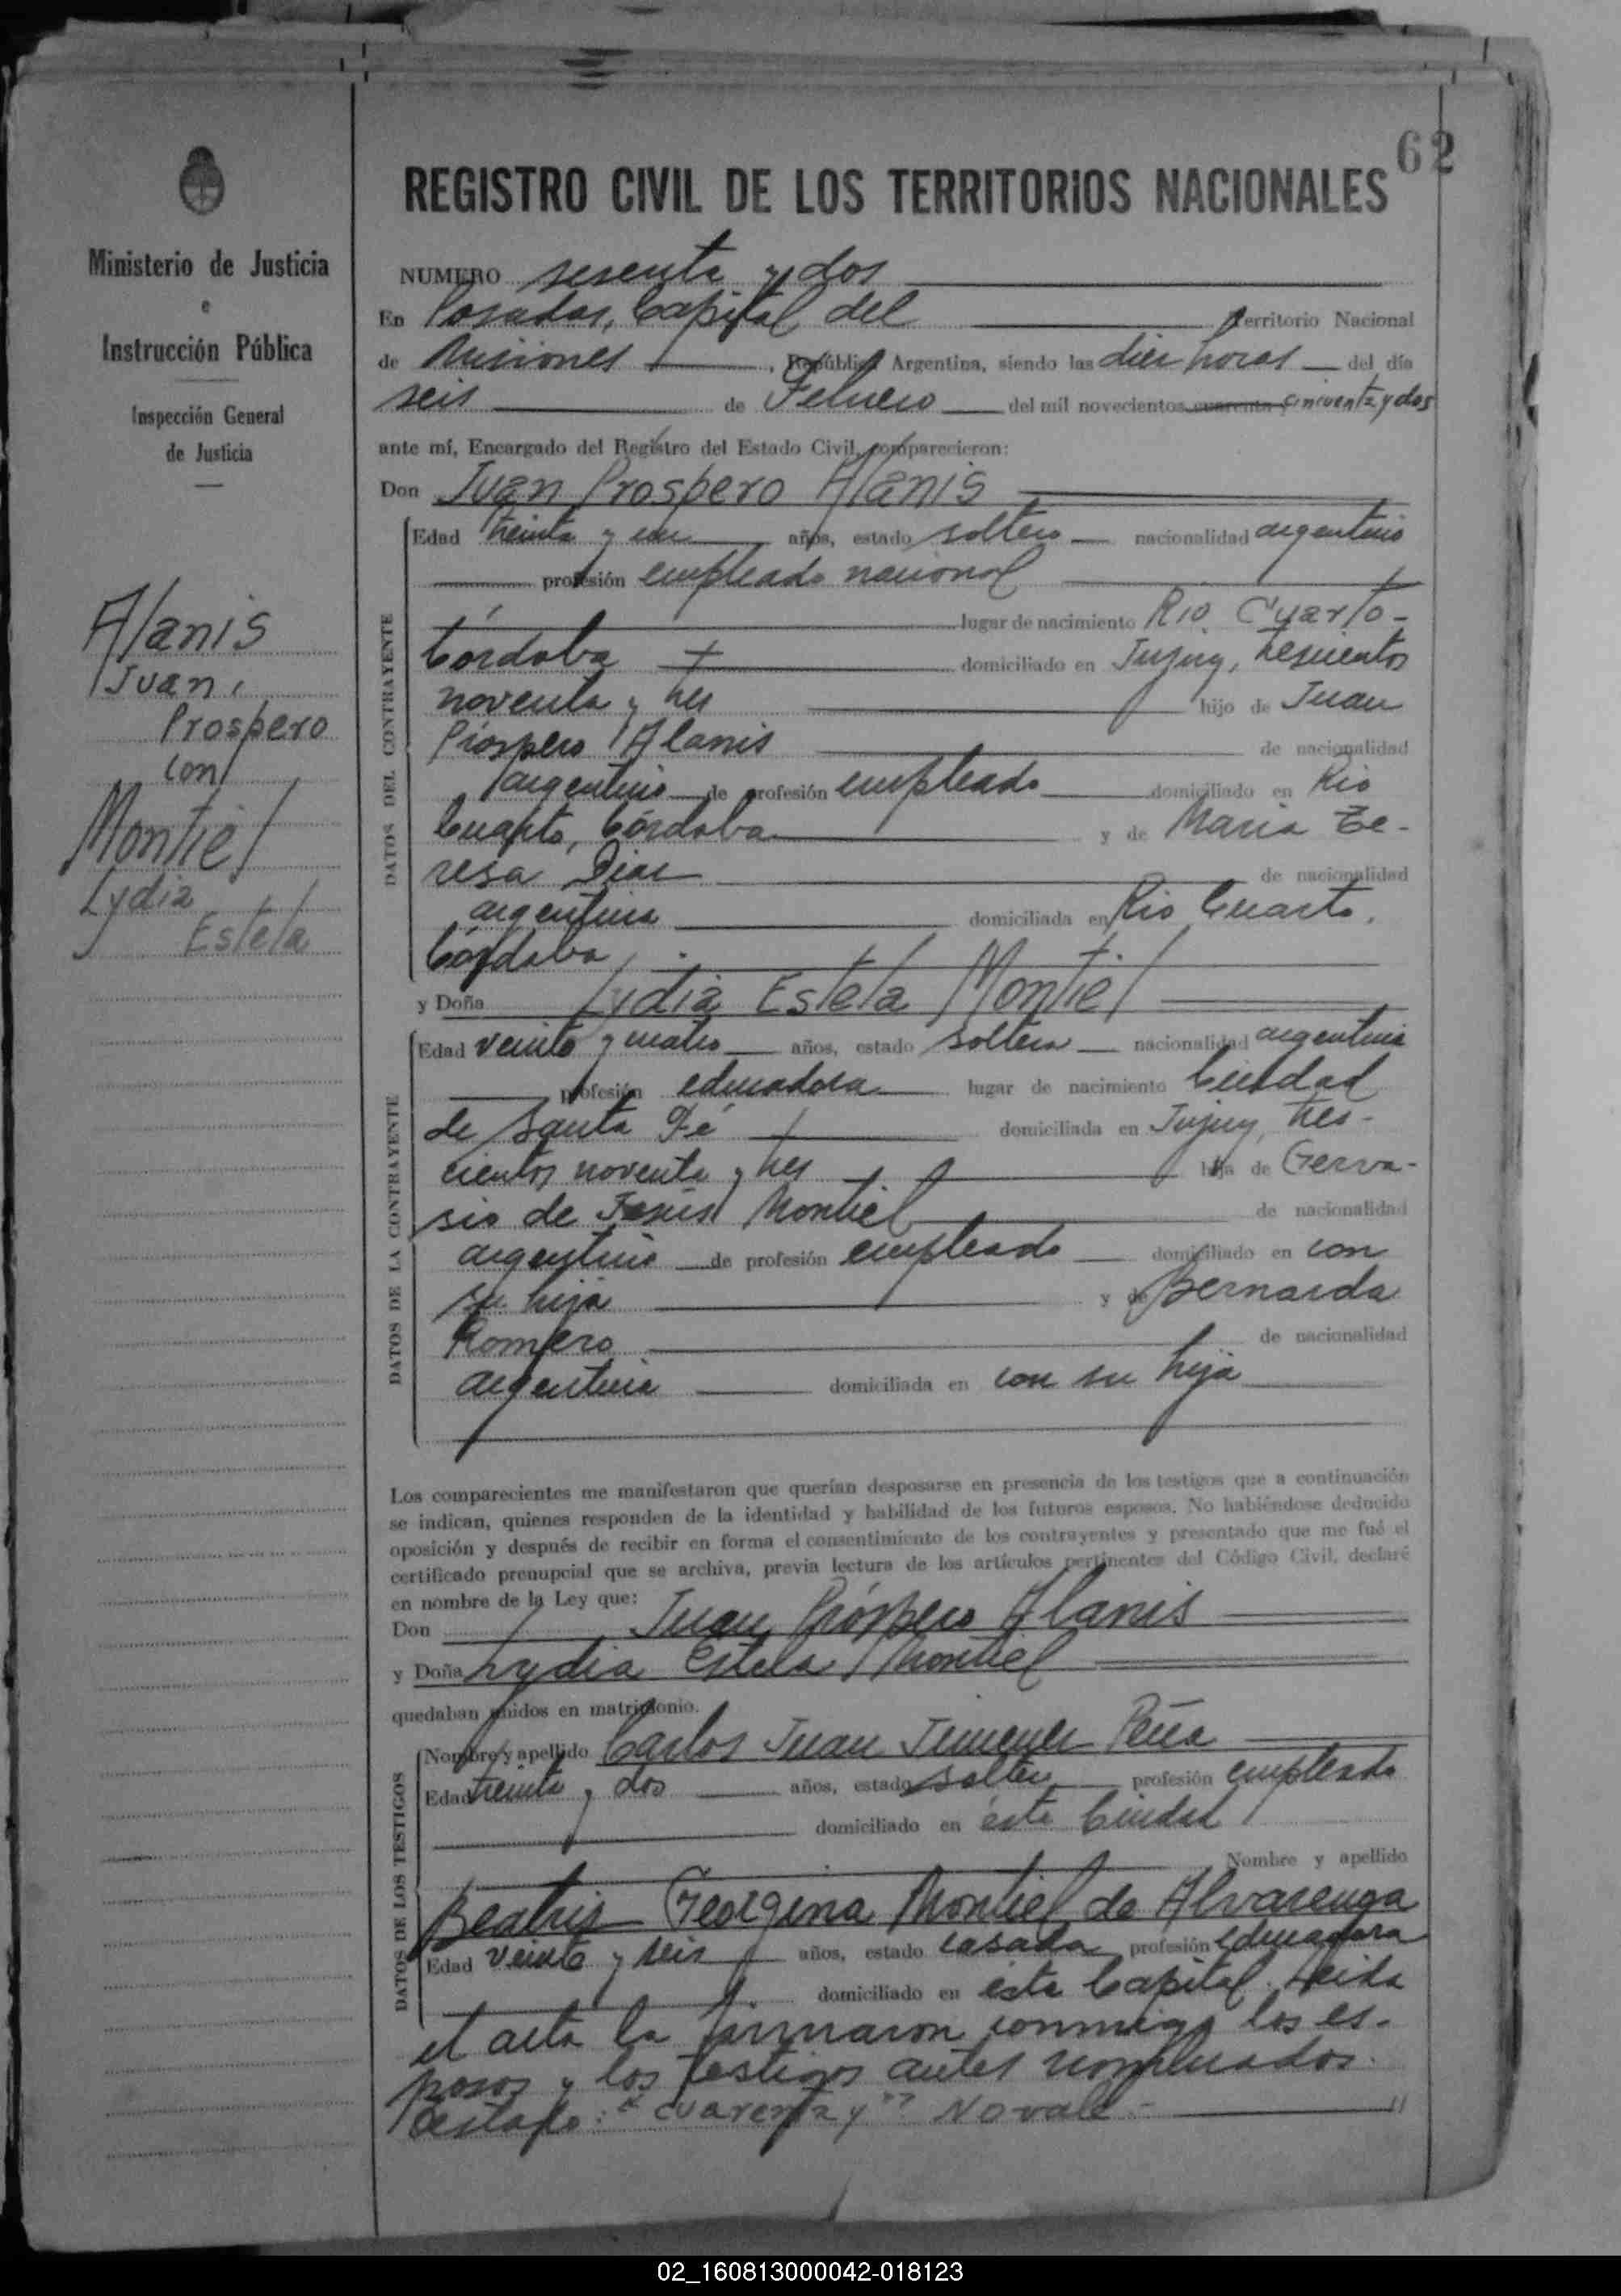 62
Ministerio de Justicia
e
Instrucción Pública
Inspección General
de Justicia
Alanis
Juan
Prospero
con
Montiel
Lydia
Estela
REGISTRO CIVIL DE LOS TERRITORIOS NACIONALES
NUMERO sesenta y dos
En Posadas, Capital del Territorio Nacional
de Misiones, República Argentina, siendo las diez horas del día
seis de Febrero del mil novecientos cuarenta cincuenta y dos
ante mí, Encargado del Registro del Estado Civil, comparecieron:
Don Juan Prospero Alanis
DATOS DEL CONTRAYENTE
Edad treinta y un años, estado soltero nacionalidad argentino
profesión empleado nacional
lugar de nacimiento Rio Cuarto-
Córdoba domiciliado en Jujuy, trescientos
noventa y tres hijo de Juan
Próspero Alanis de nacionalidad
argentino de profesión empleado domiciliado en Rio
Cuarto, Córdoba y de Maria Te-
resa Diaz de nacionalidad
argentina domiciliada en Rio Cuarto,
Córdoba
y Doña Lydia Estela Montiel
DATOS DE LA CONTRAYENTE
Edad veinte y cuatro años, estado soltera nacionalidad argentina
profesión educadora lugar de nacimiento Ciudad
de Santa Fé domiciliada en Jujuy, tres-
cientos noventa y tres hija de Gerva-
sio de Jesús Montiel de nacionalidad
argentino de profesión empleado domiciliado en con
su hija y de Bernarda
Romero de nacionalidad
argentina domiciliada en con su hija
Los comparecientes me manifestaron que querían desposarse en presencia de los testigos que a continuación
se indican, quienes responden de la identidad y habilidad de los futuros esposos. No habiéndose deducido
oposición y después de recibir en forma el consentimiento de los contrayentes y presentado que me fué el
certificado prenupcial que se archiva, previa lectura de los artículos pertinentes del Código Civil, declaré
en nombre de la Ley que:
Don Juan Próspero Alanis
y Doña Lydia Estela Montiel
quedaban unidos en matrimonio.
DATOS DE LOS TESTIGOS
Nombre y apellido Carlos Juan Jimenez Peña
Edad treinta y dos años, estado soltero profesión empleado
domiciliado en ésta Ciudad
Nombre y apellido
Beatriz Georgina Montiel de Alvarenga
Edad veinte y seis años, estado casada profesión educadora
domiciliado en ésta Capital. Leida
el acta la firmaron conmigo los es-
posos y los testigos antes nombrados.
Testado: "cuarenta y" No vale-
02_160813000042-018123